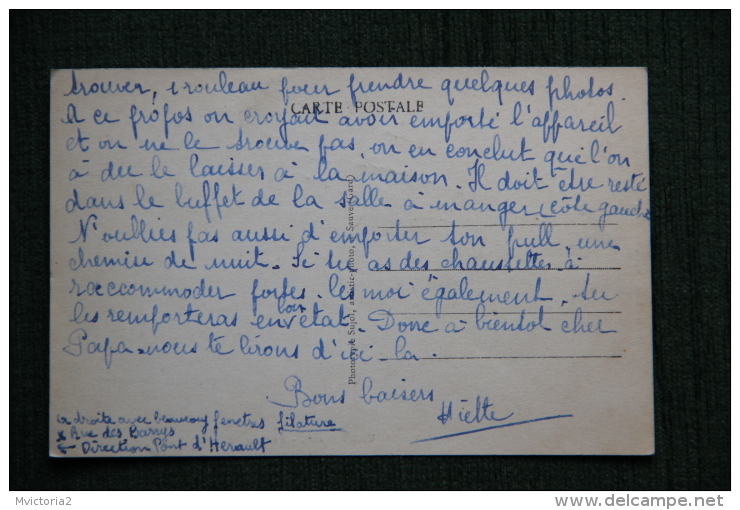 trouver, 1 rouleau pour prendre quelques photos.
CARTE POSTALE
A ce propos on croyait avoir emporté l'appareil
et on ne le trouve pas, on en conclut que l'on
a dû le laisser à la maison. Il doit être resté
dans le buffet de la salle à manger (côté gauche
N'oublies pas aussi d'emporter ton pull, une
chemise de nuit. Si tu as des chaussettes à
raccommoder portes-les moi également, tu
les remporteras en bon état. Donc à bientôt cher
Papa nous te lirons d'ici-là.
Bons baisers
à droite avec beaucoup fenetres filature
x Rue des Barrys
← Direction Pont d'Hérault
Mvictoria2
http://www.delcampe.net